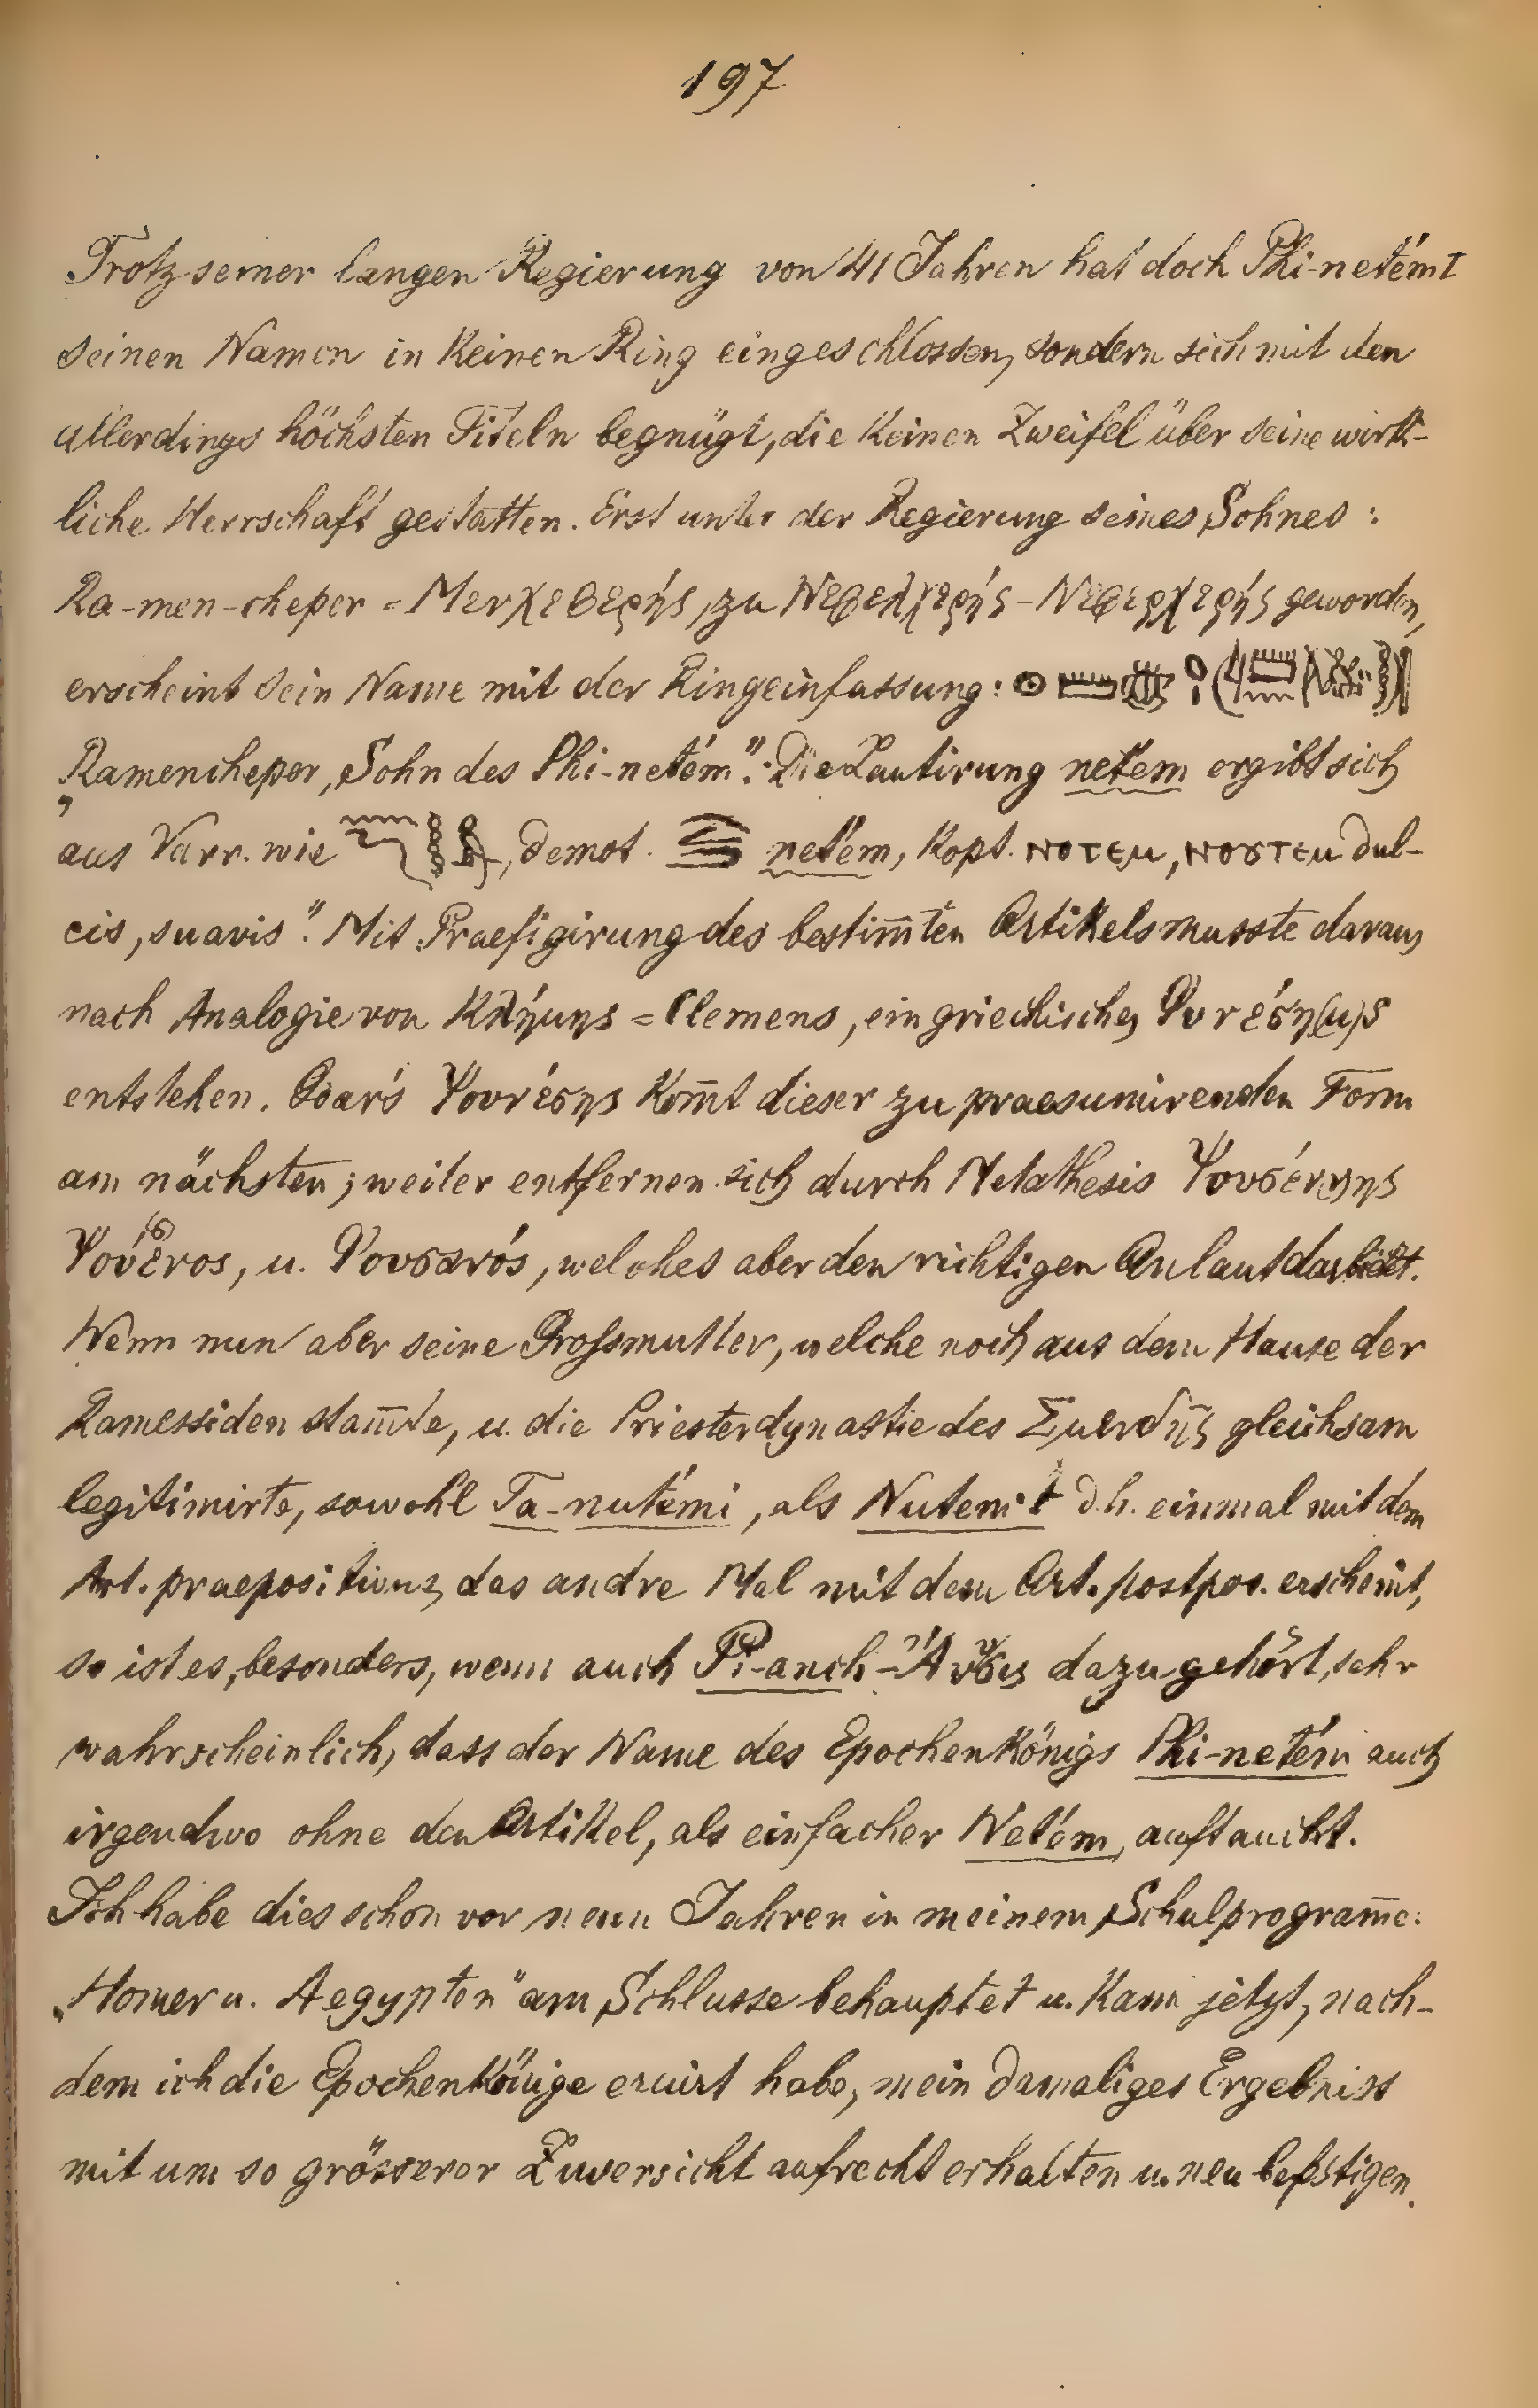 197
Trotz seiner langen Regierung von 41 Jahren hat doch Phi-netém I
seinen Namen in keinen Ring eingeschlossen, sondern sich mit den
allerdings höchsten Titeln begnügt, die keinen Zweifel über seine wirk-
liche Herrschaft gestatten. Erst unter der Regierung seines Sohnes:
Ra-men-cheper = Μενχεβερής, zu Νεφελχερής – Νεφερχερής geworden,
erscheint sein Name mit der Ringeinfassung:
„Ramencheper, Sohn des Phi-netém“. Die Lautirung netem ergibt sich
aus Varr. wie , demot. netém, kopt. ⲛⲟⲧⲉⲙ, ⲛⲟⲩⲧⲉⲙ dul-
cis, suavis“. Mit Praefigirung des bestim̅ten Artikels musste daraus
nach Analogie von Κλήμης = Clemens, ein griechisches
entstehen. Ψουνέσης kom̅t dieser zu praesumirenden Form
am nächsten; weiter entfernen sich durch Metathesis
u. welches aber den richtigen Anlaut darbietet.
Wenn nun aber seine Grossmutter, welche noch aus dem Hause der
Ramessiden stam̅te, u. die Priesterdynastie des Σμενδῆς gleichsam
legitimirte, sowohl Ta-nutémi, als Nutemit d.h. einmal mit dem
Art. praepositivus, das andre Mal mit dem Art. postpos. erscheint,
so ist es, besonders, wenn auch Pi-anch- dazu gehört, sehr
wahrscheinlich, dass der Name des Epochenkönigs Phi-netém auch
irgendwo ohne den Artikel, als einfacher Netém, auftaucht.
Ich habe dies schon vor neun Jahren in meinem Schulprogram̅e:
„Homer u. Aegypten“ am Schlusse behauptet u. kann jetzt, nach-
dem ich die Epochenkönige eruirt habe, mein damaliges Ergebniss
mit um so grösserer Zuversicht aufrecht erhalten u. neu befestigen.